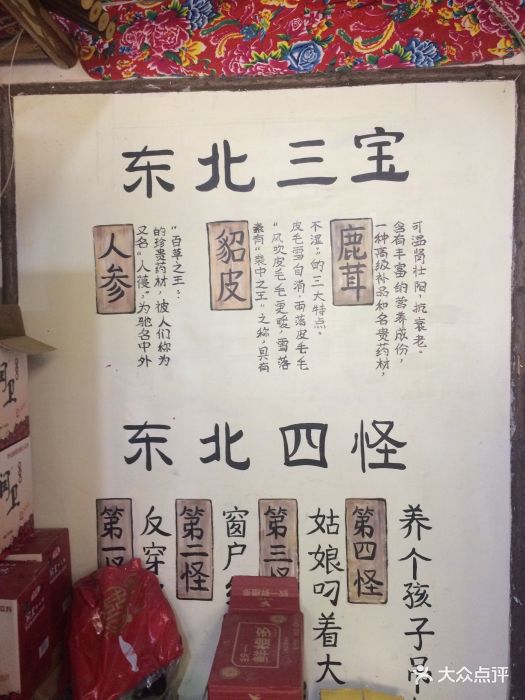 东北三宝
人参
又名“人葠”，为驰名中外
的珍贵药材，被人们称为
“百草之王”。
貂皮
素有“裘中之王”之称，具有
“风吹皮毛毛更暖，雪落
皮毛雪自消，雨落皮毛毛
不湿”的三大特点。
鹿茸
一种高级补品和名贵药材，
含有丰富的营养成份，
可温肾壮阳，抗衰老。
东北四怪
第一怪
反穿
第二怪
窗户
第三怪
姑娘叼着大
第四怪
养个孩子吊
鲜橙多
大众点评